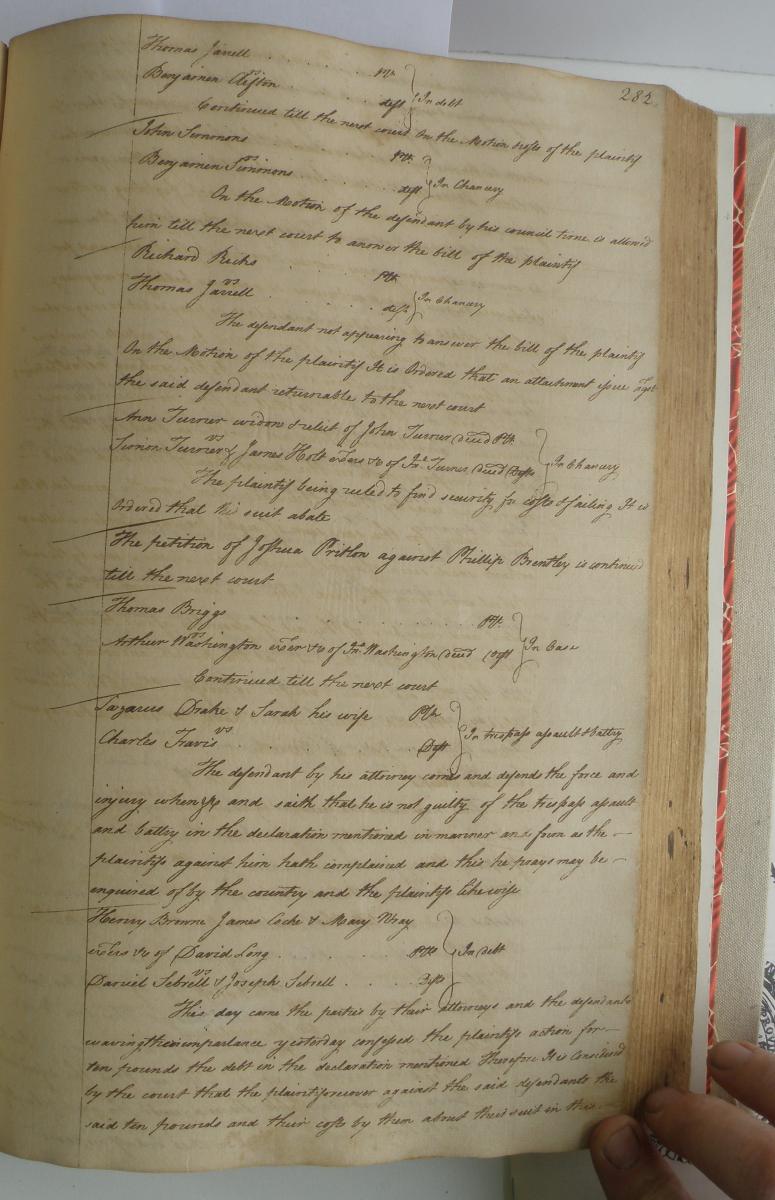 282
Thomas Jarrell . . . . . . . Plt
vs
Benjamen Clifton . . . . . . . deft } In debt
Continued till the next court On the Motion & costs of the plaintif
John Simmons . . . . . . . Plt.
vs
Benjamen Simmons . . . . . . . deft } In Chancery
On the Motion of the defendant by his council time is allowed
him till the next court to answer the bill of the plaintif
Richard Ricks . . . . Plt
vs
Thomas Jarrell . . . . . deft } In Chancery
The defendant not appearing to answer the bill of the plaintif
On the Motion of the plaintif It is Ordered that an attachment issue agst
the said defendant returnable to the next court
Ann Turner widow & relict of John Turner decd Plt.
vs
Simon Turner & James Holt exers &c of Jno. Turner decd Defts } In Chancery
The plaintif being ruled to find security for costs & failing It is
Ordered that this suit abate
The petition of Joshua Pritlon against Phillip Brantley is continued
till the next court
Thomas Briggs . . . . . . . . Plt.
vs
Arthur Washington exer &c of Jno. Washington decd Deft } In Case
Continued till the next court
Lazarus Drake & Sarah his wife Plts
vs
Charles Travis . . . . . . . Deft } In trespass assault & battry
The defendant by his attorney comes and defends the force and
injury when &c and saith that he is not guilty of the trespass assault
and battry in the declaration mentioned in manner and form as the —
plaintifs against him hath complained and this he prays may be —
enquired of by the country and the plaintifs likewise
Henry Browne James Cocke & Mary Wray
exers &c of David Long . . . . . . Plts } In debt
vs
Daniel Sebrell & Joseph Sebrell . . . . Defts
This day came the parties by their attorneys and the defendants
waving their imparlance yesterday confessed the plaintifs action for —
ten pounds the debt in the declaration mentioned Therefore It is Considered
by the court that the plaintifs recover against the said defendants the
said ten pounds and their costs by them about their suit in this —